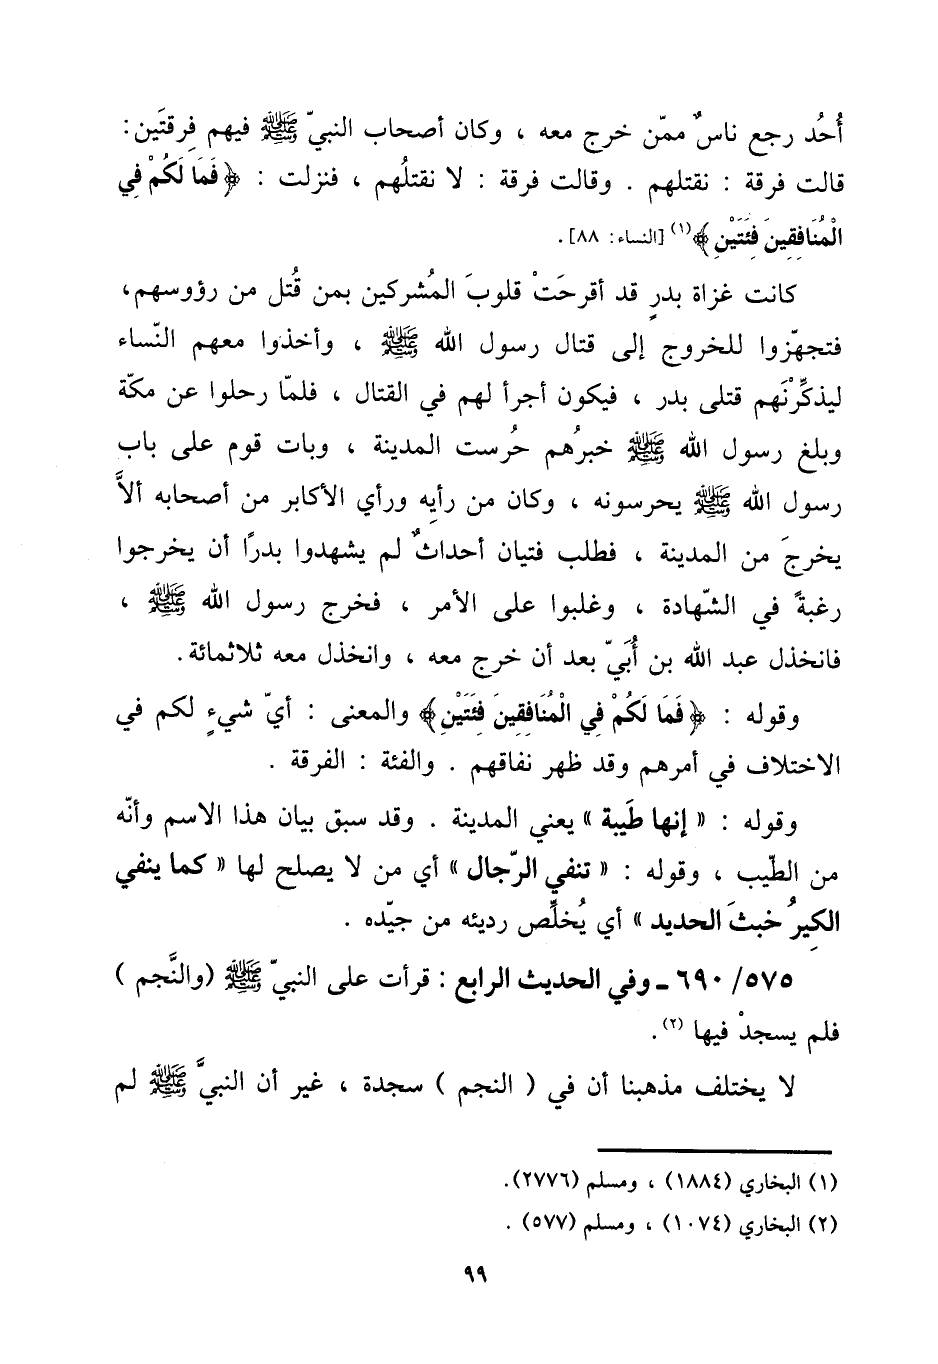 أُحُد رجع ناسٌ ممّن خرج معه ، وكان أصحاب النبيّ ﷺ فيهم فِرقتَين :
قالت فرقة : نقتلهم . وقالت فرقة : لا نقتلُهم ، فنزلت : ﴿فَمَا لَكُمْ فِي
الْمُنَافِقِينَ فِئَتَيْنِ﴾(١) [النساء: ٨٨] .
كانت غزاة بدرٍ قد أقرحَتْ قلوبَ المُشركين بمن قُتل من رؤوسهم،
فتجهّزوا للخروج إلى قتال رسول الله ﷺ ، وأخذوا معهم النّساء
ليذكِّرْنَهم قتلى بدر ، فيكون أجرأ لهم في القتال ، فلمّا رحلوا عن مكّة
وبلغ رسول الله ﷺ خبرُهم حُرست المدينة ، وبات قوم على باب
رسول الله ﷺ يحرسونه ، وكان من رأيِه ورأي الأكابر من أصحابه ألاَّ
يخرجَ من المدينة ، فطلب فتيان أحداثٌ لم يشهدوا بدرًا أن يخرجوا
رغبةً في الشّهادة ، وغلبوا على الأمر ، فخرج رسول الله ﷺ ،
فانخذل عبد الله بن أُبَيّ بعد أن خرج معه ، وانخذل معه ثلاثمائة.
وقوله : ﴿فَمَا لَكُمْ فِي الْمُنَافِقِينَ فِئَتَيْنِ﴾ والمعنى : أيّ شيءٍ لكم في
الاختلاف في أمرهم وقد ظهر نفاقهم . والفئة : الفرقة .
وقوله : « إنها طَيبة » يعني المدينة . وقد سبق بيان هذا الاسم وأنّه
من الطّيب ، وقوله : « تنفي الرّجال » أي من لا يصلح لها « كما ينفي
الكِيرُ خبثَ الحديد » أي يُخلِّص رديئه من جيّده .
٥٧٥/ ٦٩٠ ـ وفي الحديث الرابع : قرأت على النبيّ ﷺ (والنَّجم )
فلم يسجدْ فيها (٢).
لا يختلف مذهبنا أن في ( النجم ) سجدة ، غير أن النبيَّ ﷺ لم
(١) البخاري (١٨٨٤) ، ومسلم (٢٧٧٦).
(٢) البخاري (١٠٧٤) ، ومسلم (٥٧٧) .
٩٩